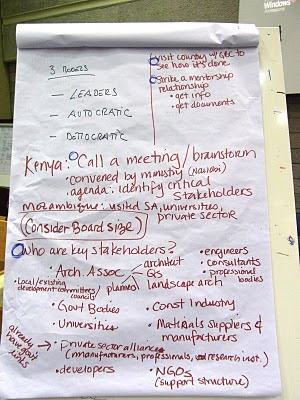 Windows
3 MODELS
— LEADERS
— AUTOCRATIC
— DEMOCRATIC
Visit country w/ QBC to
see how it's done
Strike a mentorship
relationship
• get info
• get documents
Kenya: Call a meeting/brainstorm
• convened by ministry (Nairobi)
• agenda: identify critical
stakeholders
Mozambique: visited SA, universities,
private sector
(Consider Board size)
Who are key stakeholders?
• Arch. Assoc
architect
QS
landscape arch
• engineers
• consultants
• professional
bodies
• Local/existing
development committees/
councils
planned
• Govt Bodies
• Const Industry
• Universities
• Materials suppliers &
manufacturers
already
have govt
links
• Private sector alliance
(manufacturers, professionals, research inst.)
• developers
• NGOs
(support structure)